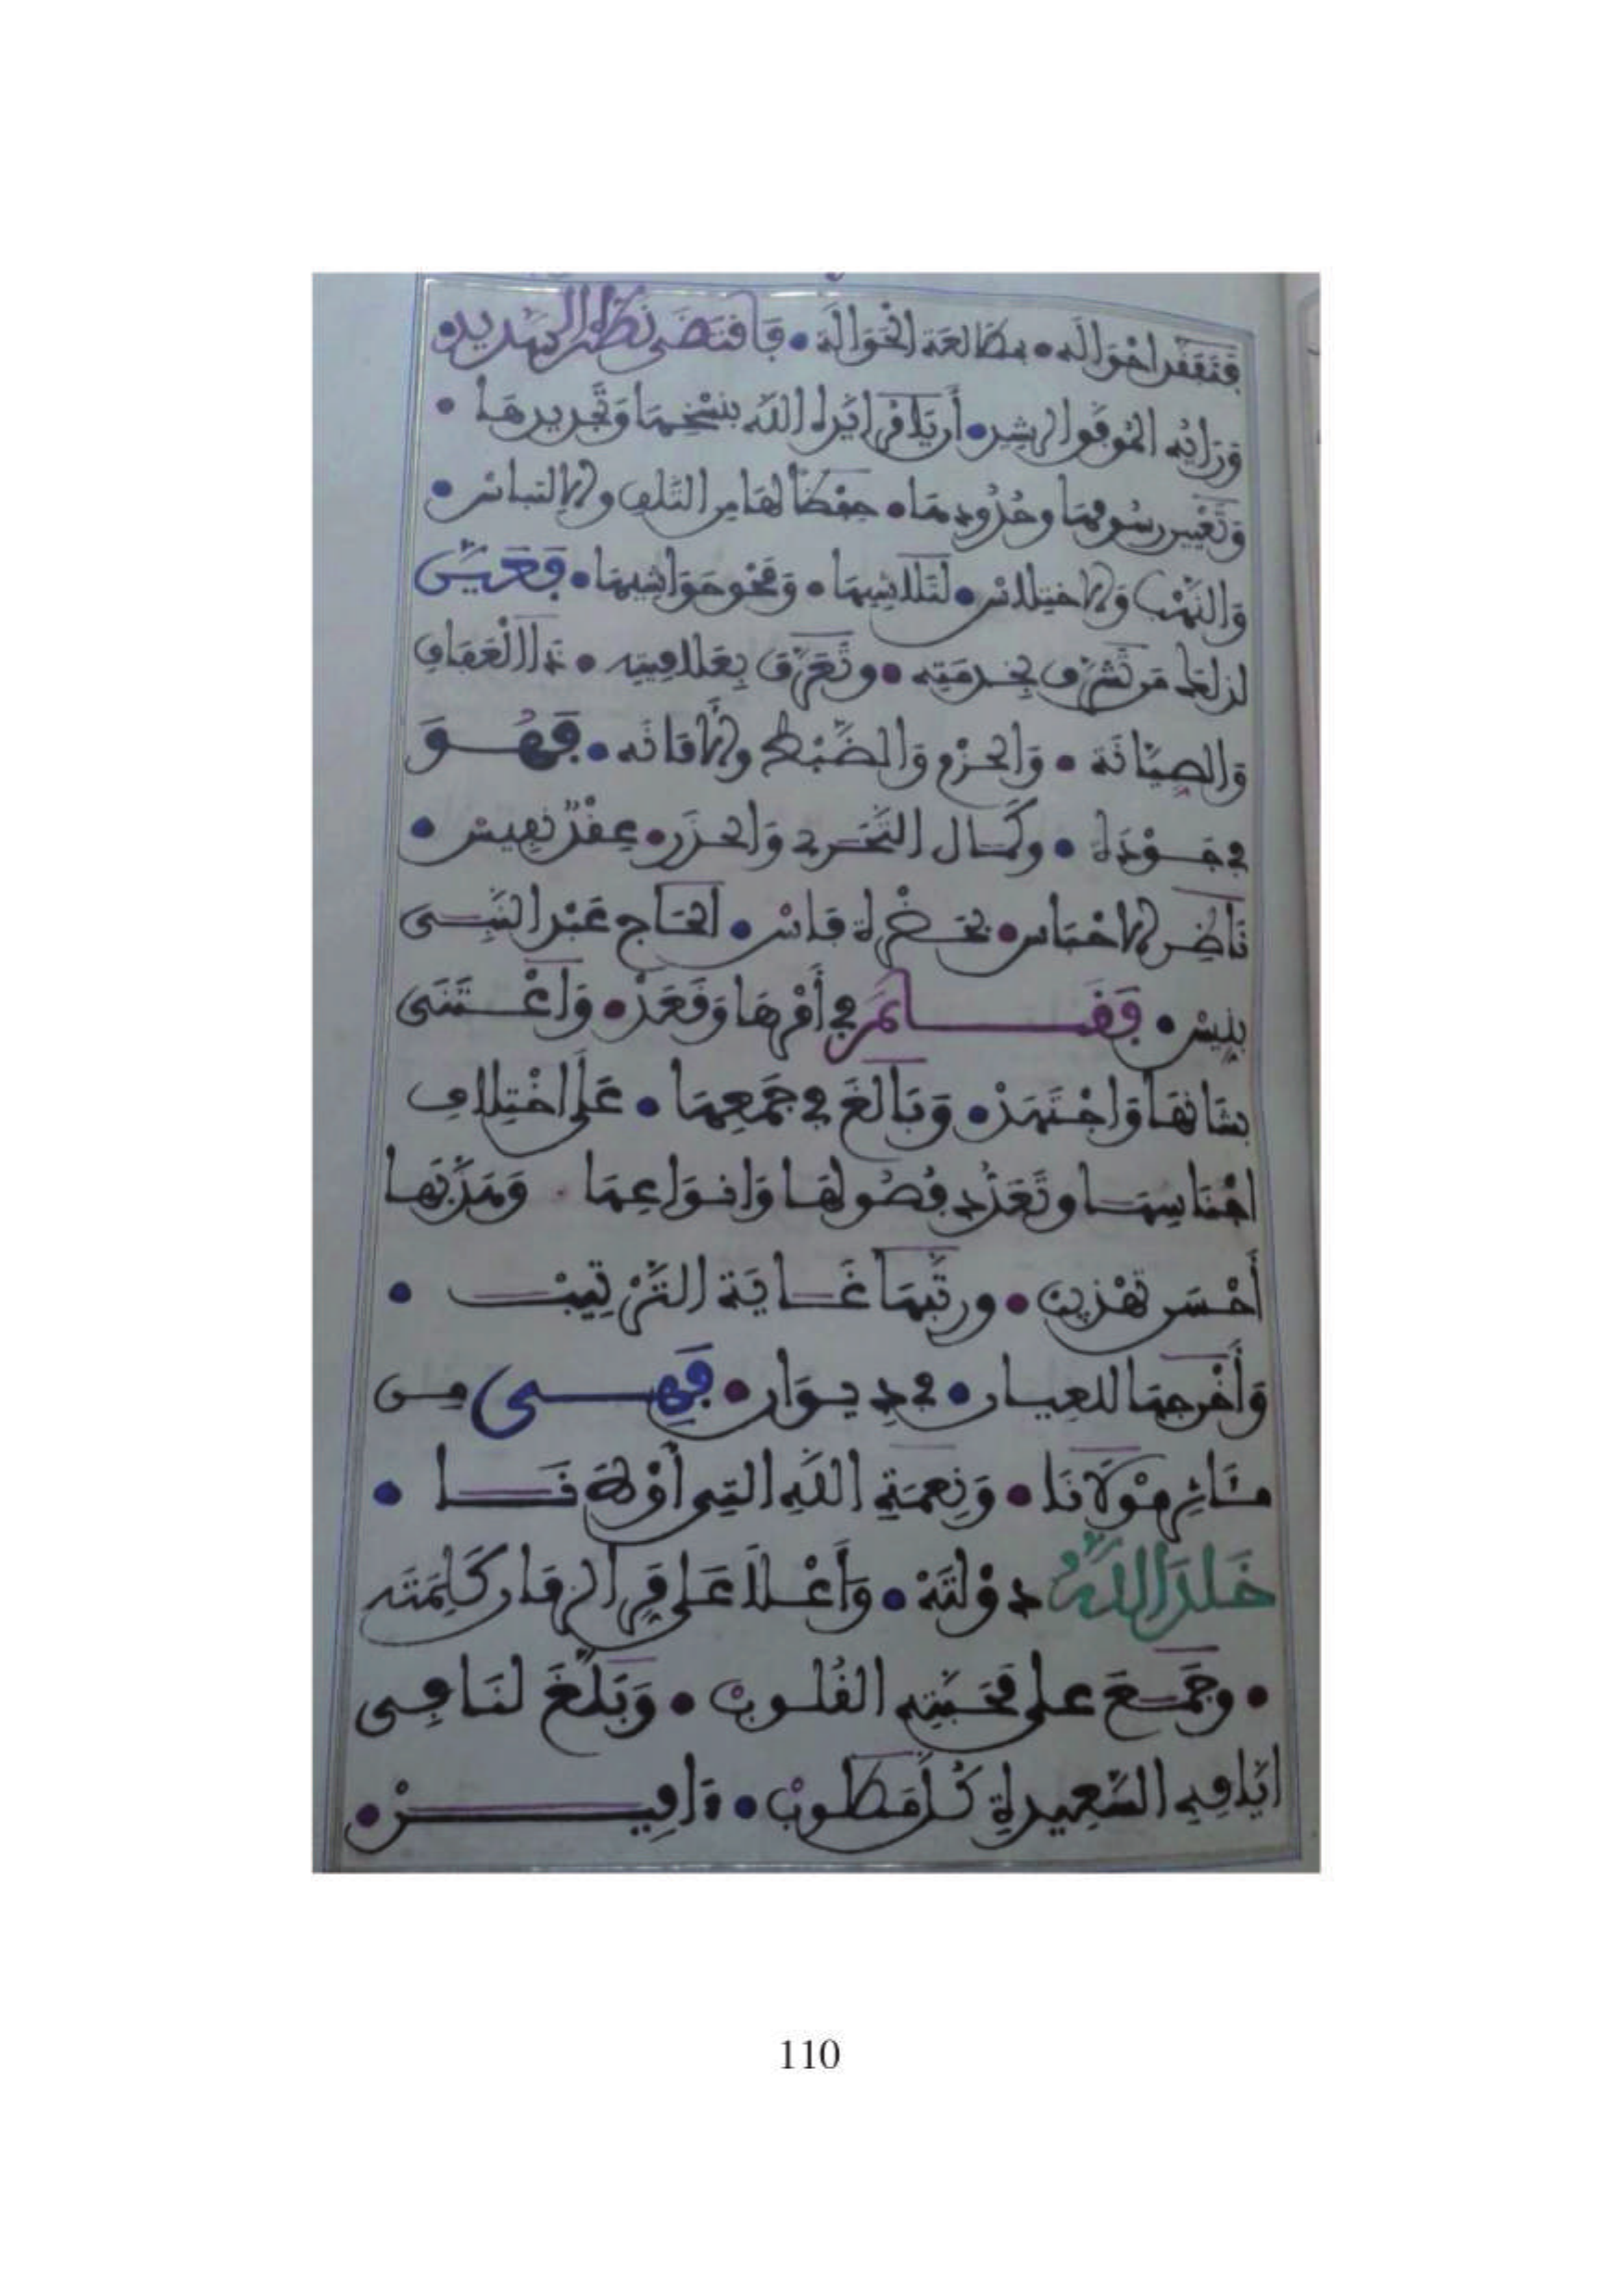 فتفقد احواله • مطالعة الحوالة • فاقتضى نظره السديد •
ورايه الموفق الرشيد • أن يامر ايده الله بنسخها وتجديدها •
وتغيير رسومها وحدودها • حفظا لها من التلف والالتباس •
والنهب والاختلاس • لتلاشيها • ومحو حواشيها • فعين
لذلك من تشرف بخدمته • وتعرف بعلاميته • ذا العفاف
والصيانة • والحزم والضبط والامانه • فهو
في جودة • وكمال التحري والحذر • عقد نفيس •
ناظر الاحباس • بحضرة فاس • الحاج عبد النبي
بنيس • فقام في أمرها وقعد • واعتنى
بشانها واجتهد • وبالغ في جمعها • على اختلاف
اجناسها وتعدد فصولها وانواعها • وهذبها
أحسن تهذيب • ورتبها غاية الترتيب •
وأخرجها للعيان • في ديوان • فهي من
مئاثر مولانا • ونعمة الله التي أولانا •
خلد الله دولته • وأعلا على مر الزمان كلمته
• وجمع على محبته القلوب • وبلغ لنا في
ايامه السعيدة كل مطلوب • ءامين •
110